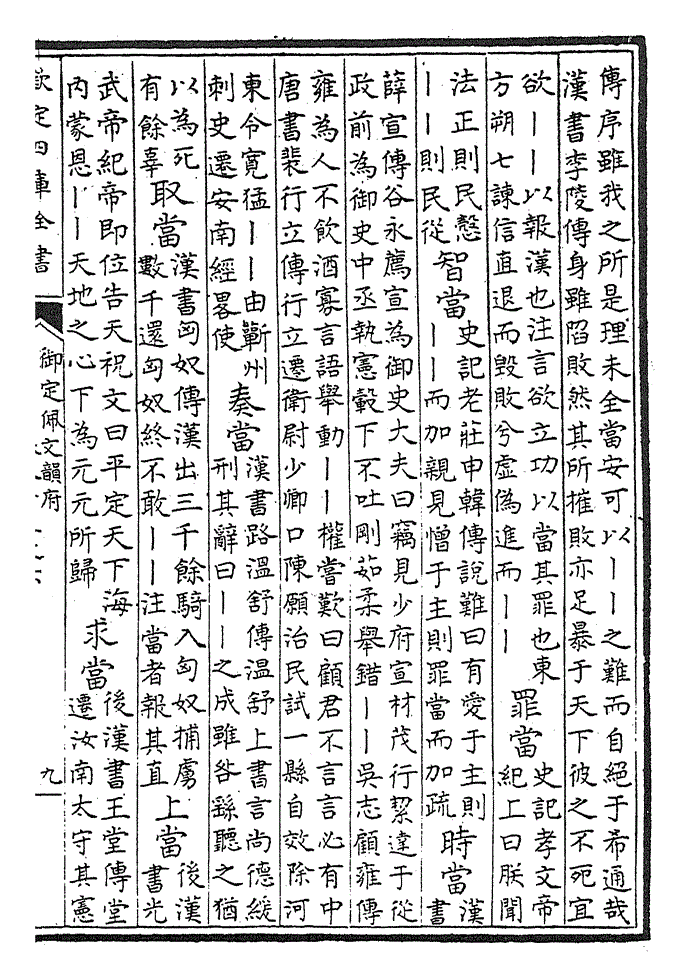 傳序雖我之所是理未全當安可以丨丨之難而自絕于希通哉
漢書李陵傳身雖陷敗然其所摧敗亦足暴于天下彼之不死宜
欲丨丨以報漢也注言欲立功以當其罪也東
方朔七諫信直退而毀敗兮虚偽進而丨丨
罪當
史記孝文帝
紀上曰朕聞
法正則民慤
丨丨則民從
智當
史記老莊申韓傳說難曰有愛于主則
丨丨而加親見憎于主則罪當而加疏
時當
漢
書
薛宣傳谷永薦宣為御史大夫曰竊見少府宣材茂行絜達于從
政前為御史中丞執憲轂下不吐剛茹柔舉錯丨丨吳志顧雍傳
雍為人不飲酒寡言語舉動丨丨權嘗歎曰顧君不言言必有中
唐書裴行立傳行立遷衛尉少卿口陳願治民試一縣自效除河
東令寛猛丨丨由蘄州
刺史遷安南經畧使
奏當
漢書路溫舒傳溫舒上書言尚德緩
刑其辭曰丨丨之成雖咎繇聽之猶
以為死
有餘辜
取當
漢書匈奴傳漢出三千餘騎入匈奴捕虜
數千還匈奴終不敢丨丨注當者報其直
上當
後漢
書光
武帝紀帝即位告天祝文曰平定天下海
内蒙恩丨丨天地之心下為元元所歸
求當
後漢書王堂傳堂
遷汝南太守其憲
欽定四庫全書
御定佩文韻府
九